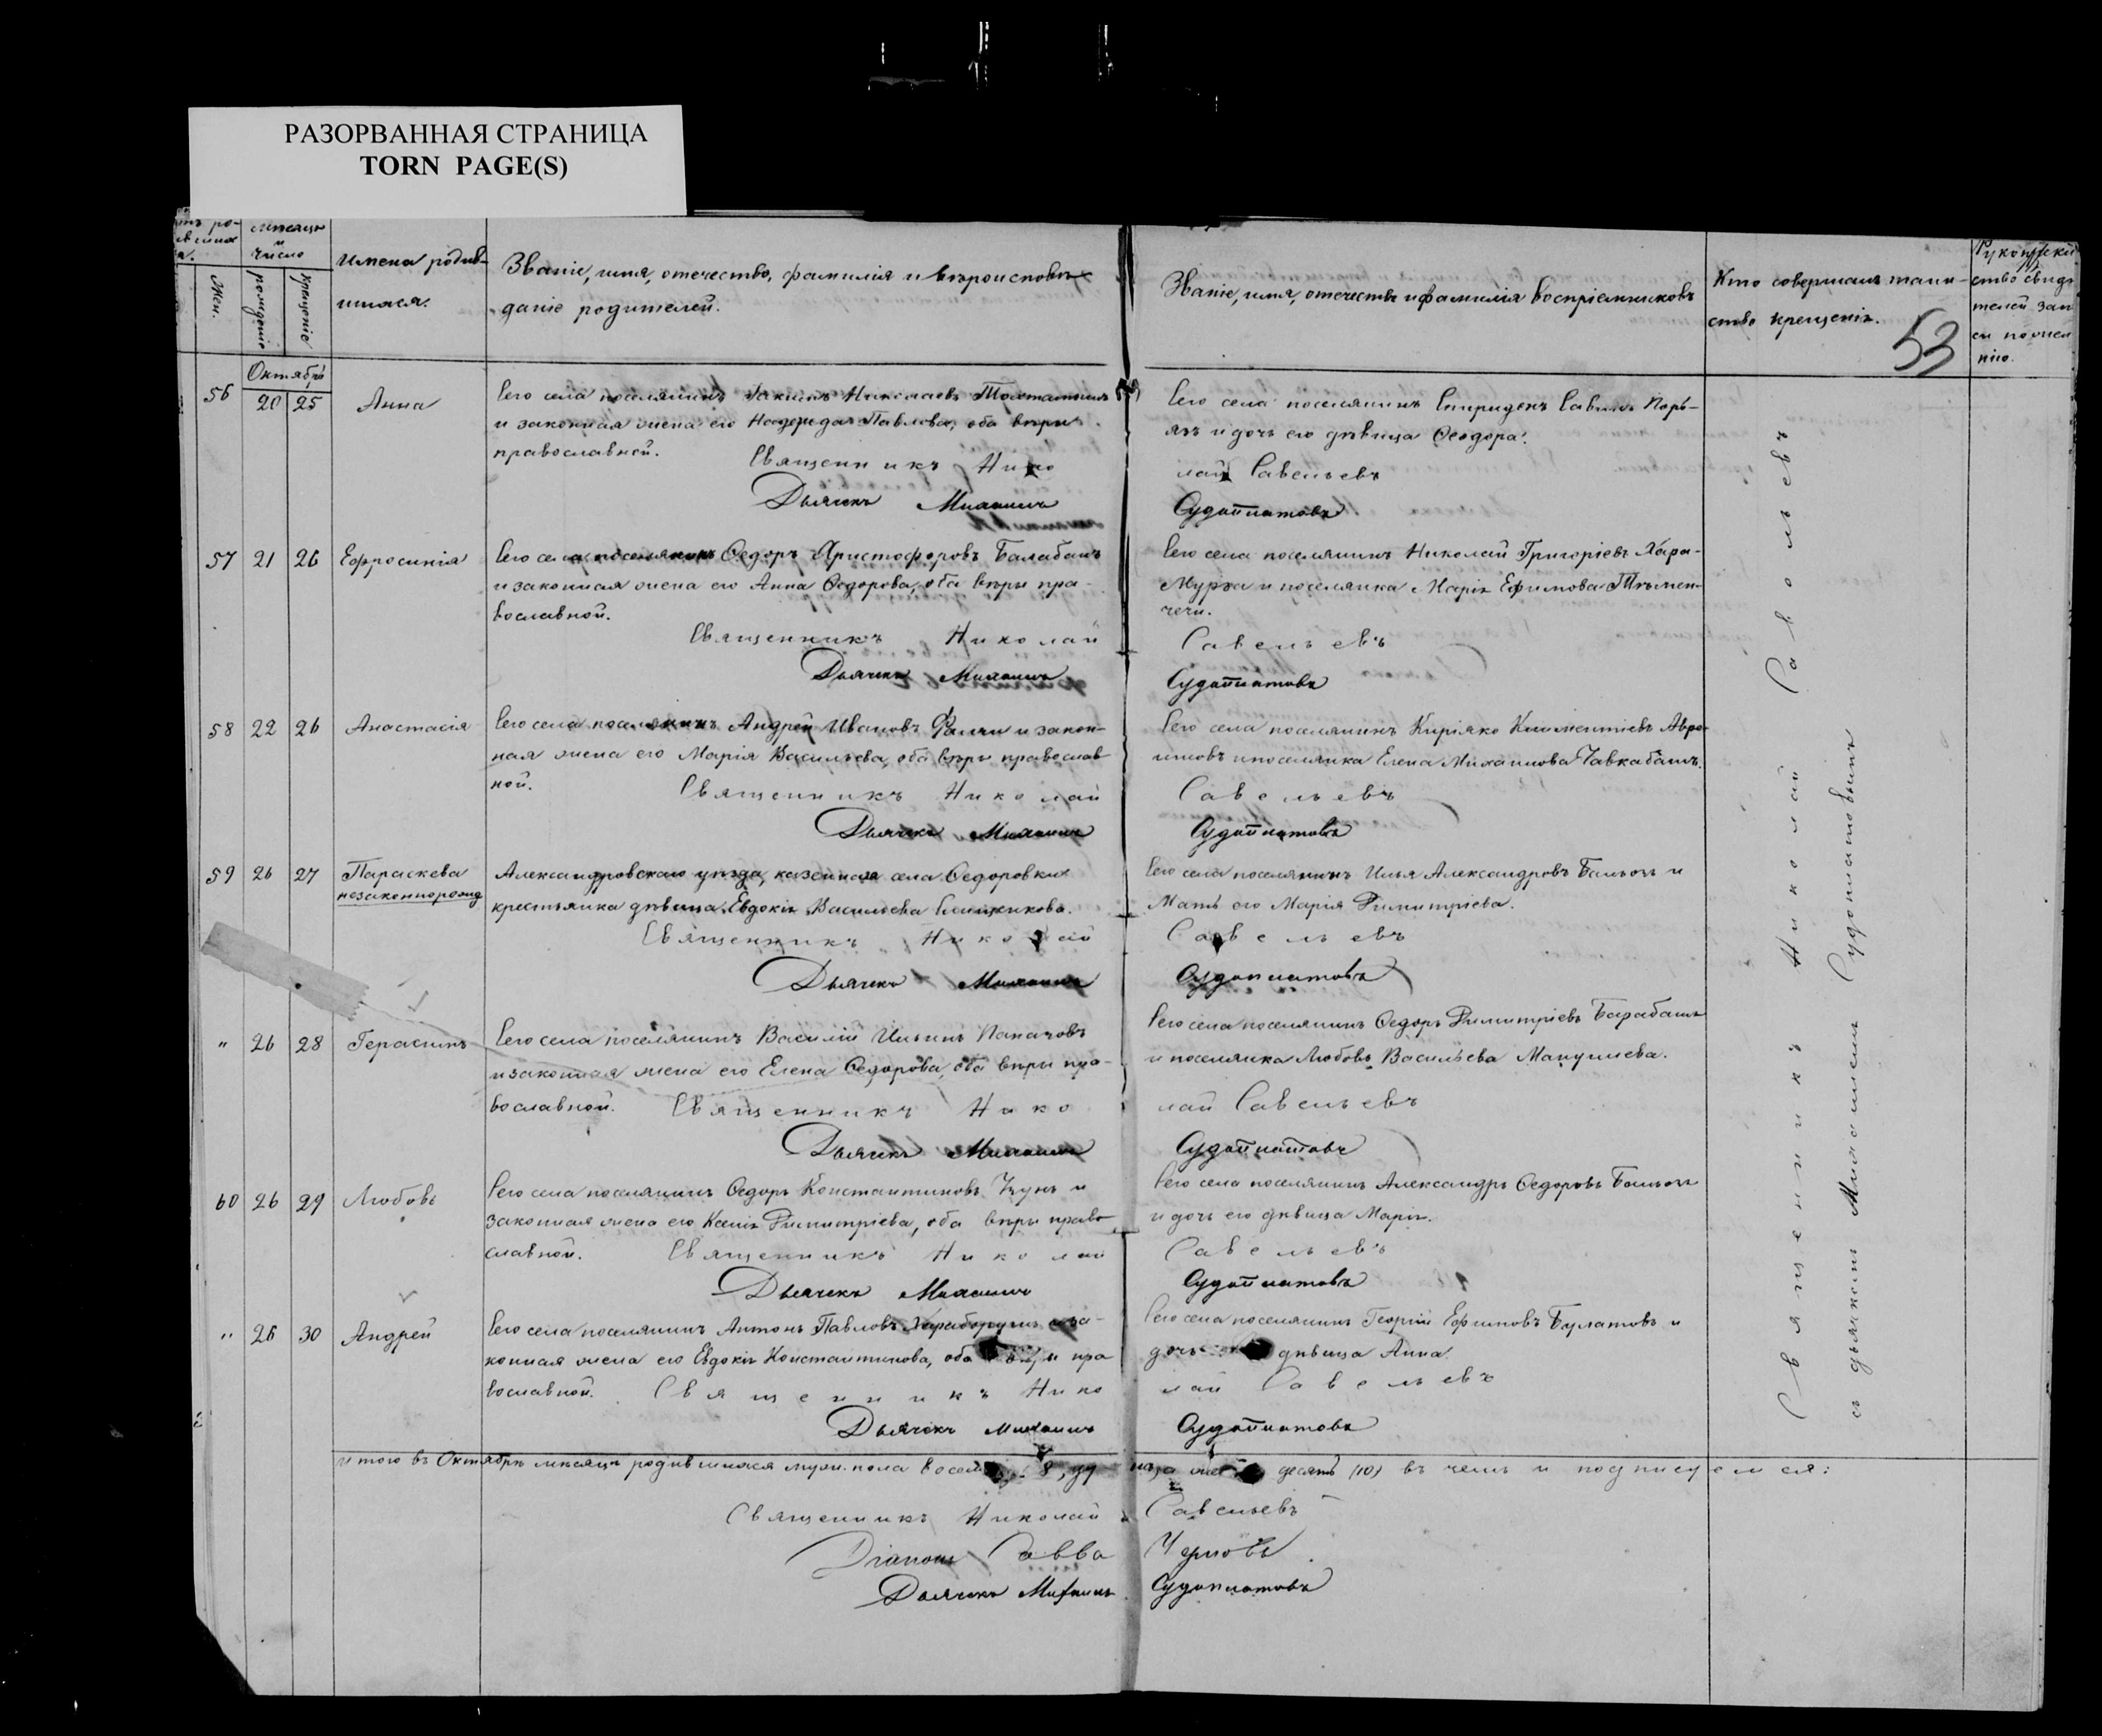 РАЗОРВАННАЯ СТРАНИЦА
TORN PAGE(S)
Мѣсяцъ и число
Жен.
рожденіе
Крещеніе
Имена родив-
шихся.
Званіе, имя, отечество, фамилія и вѣроисповѣ-
даніе родителей.
Званіе, имя, отечество и фамилія воспріемниковъ
Кто совершалъ таин-
ство крещенія.
53
Рукоприклад
ство свидѣ
телей зап
си по жел
нію.
Октябрь
56 20 25 Анна
Сего села поселянинъ Николаевъ
и законная жена его Надежда Павлова, оба вѣры
православной.
Священникъ Нико
Дьячекъ Михаилъ
Сего села поселянинъ Спиридонъ Савинъ Поръ-
язъ и дочь его дѣвица Ѳеодора.
лай Савельевъ
Судоплатовъ
57 21 26 Ефросинія
Сего села поселянинъ Ѳедоръ Христофоровъ Балабанъ
и законная жена его Анна Ѳедорова, оба вѣры пра-
вославной.
Священникъ Николай
Дьячекъ Михаилъ
Сего села поселянинъ Николай Григоріевъ Хара-
Мурза и поселянка Марія Ефимова
чечи.
Савельевъ
Судоплатовъ
58 22 26 Анастасія
Сего села поселянинъ Андрей Ивановъ и закон-
ная жена его Марія Васильева, оба вѣры православ
ной.
Священникъ Николай
Дьячекъ Михаилъ
Сего села поселянинъ Киріяко Климентіевъ Авра-
мовъ и поселянка Елена Михаилова Чавкабашъ.
Савельевъ
Судоплатовъ
59 26 27 Параскева
незаконнорожд
Александровскаго уѣзда, казеннаго села Ѳедоровки
крестьянка дѣвица Евдокія Васильева
Священникъ Николай
Дьячекъ Михаилъ
Сего села поселянинъ Илья Александровъ и
Мать его Марія Димитріева.
Савельевъ
Судоплатовъ
" 26 28 Герасимъ
Сего села поселянинъ Василій Ильинъ Папачовъ
и законная жена его Елена Ѳедорова, оба вѣры пра-
вославной.
Священникъ Нико
Дьячекъ Михаилъ
Сего села поселянинъ Ѳедоръ Димитріевъ Барабашъ
и поселянка Любовь Васильева
лай Савельевъ
Судоплатовъ
60 26 29 Любовь
Сего села поселянинъ Ѳедоръ Константиновъ и
законная жена его Ксенія Димитріева, оба вѣры право
славной.
Священникъ Николай
Дьячекъ Михаилъ
Сего села поселянинъ Александръ Ѳедоровъ
и дочь его дѣвица Марія.
Савельевъ
Судоплатовъ
" 26 30 Андрей
Сего села поселянинъ Антонъ Павловъ и за-
конная жена его Евдокія Константинова, оба вѣры пра
вославной.
Священникъ Нико
Дьячекъ Михаилъ
Сего села поселянинъ Георгій Ефимовъ Булатовъ и
дочь дѣвица Анна
лай Савельевъ
Судоплатовъ
Священникъ Николай Савельевъ
съ дьячкомъ Михаиломъ Судоплатовымъ
итого въ Октябрѣ мѣсяцѣ родившихся муж. пола восемь 8, десять (10) въ чемъ и подписуемся:
Священникъ Николай Савельевъ
Діаконъ Савва Черновъ
Дьячекъ Михаилъ Судоплатовъ